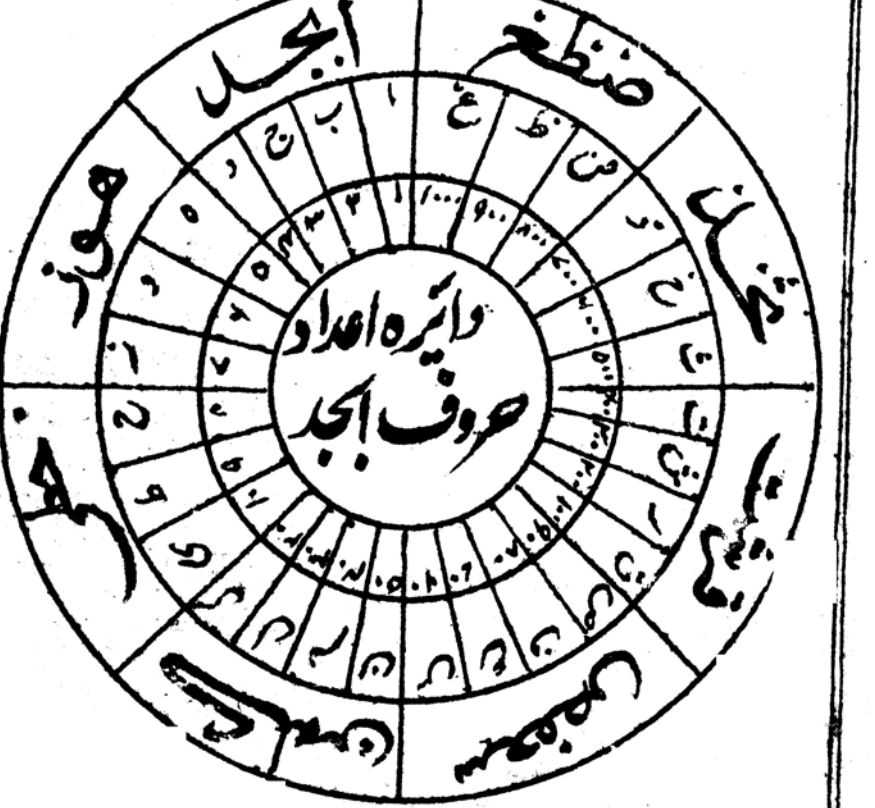 دائرہ اعداد
حروف ابجد
ابجد
ھوز
حطی
کلمن
سعفص
قرشت
ثخذ
ضظغ
ا ب ج د ہ و ز ح ط ی ک ل م ن س ع ف ص ق ر ش ت ث خ ذ ض ظ غ
۱ ۲ ۳ ۴ ۵ ۶ ۷ ۸ ۹ ۱۰ ۲۰ ۳۰ ۴۰ ۵۰ ۶۰ ۷۰ ۸۰ ۹۰ ۱۰۰ ۲۰۰ ۳۰۰ ۴۰۰ ۵۰۰ ۶۰۰ ۷۰۰ ۸۰۰ ۹۰۰ ۱۰۰۰